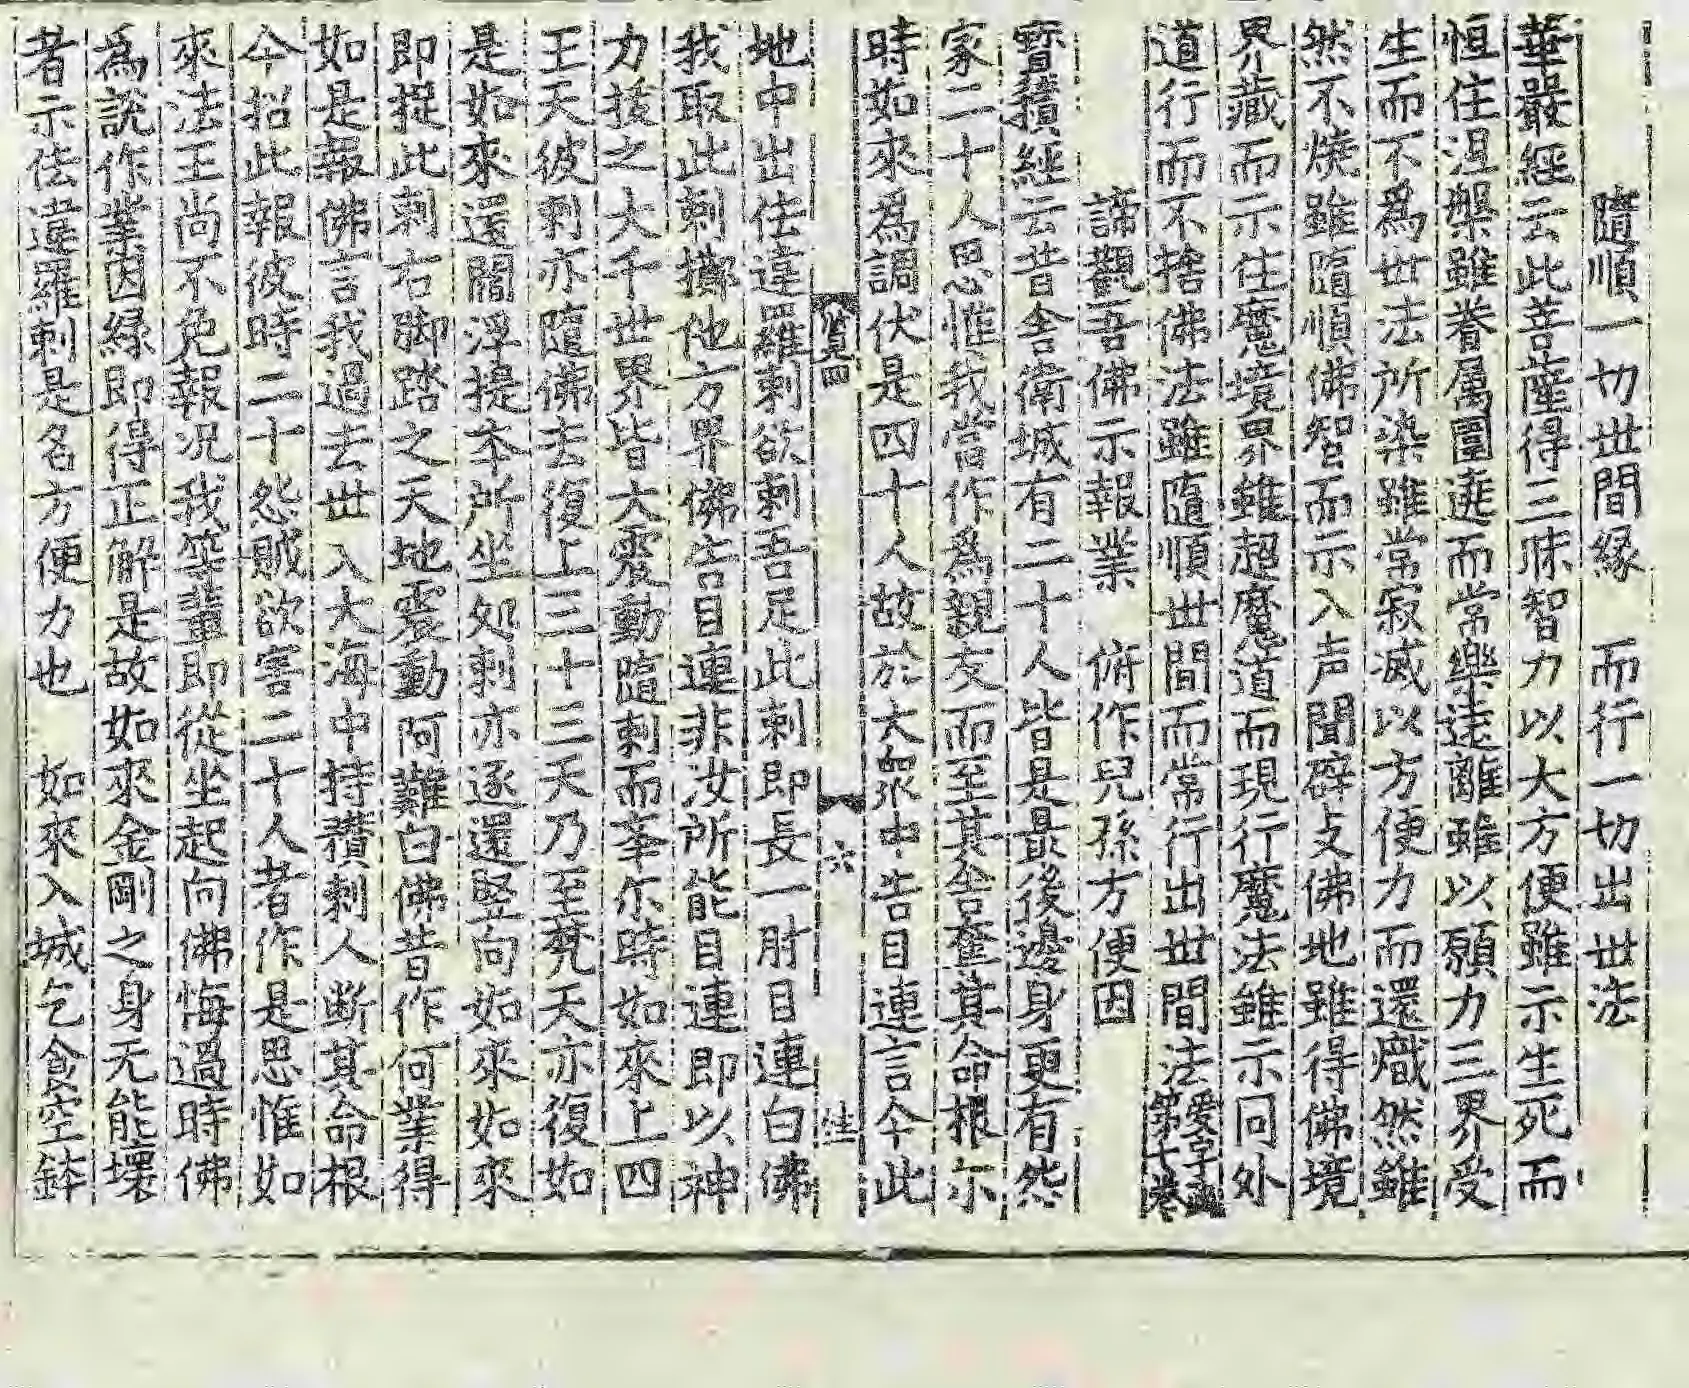 隨順一切世間緣　而行一切出世法
華嚴經云此菩薩得三昧智力以大方便雖示生死而
恒住涅槃雖眷屬圍遶而常樂遠離雖以願力三界受
生而不爲世法所染雖常寂滅以方便力而還熾然雖
然不燒雖隨順佛智而示入声聞辟支佛地雖得佛境
界藏而示住魔境界雖超魔道而現行魔法雖示同外
道行而不捨佛法雖隨順世間而常行出世間法愛字函第十卷
諦觀吾佛示報業　俯作兒孫方便因
寶積經云昔舍衛城有二十人皆是最後邊身更有怨
家二十人思惟我當作爲親友而至其舍奪其命根尒
時如來爲調伏是四十人故於大衆中告目連言今此
四
六
地中出佉違羅刺欲刺吾足此刺即長一肘目連白佛
我取此刺擲他方界佛告目連非汝所能目連即以神
力拔之大千世界皆大震動隨刺而举尔時如來上四
王天彼刺亦隨佛去復上三十三天乃至梵天亦復如
是如來還閻浮提本所坐処刺亦逐還竪向如來如來
即捉此刺右脚踏之天地震動阿難白佛昔作何業得
如是報佛言我過去世入大海中持𥎞刺人断其命根
今招此報彼時二十怨賊欲害二十人者作是思惟如
來法王尚不免報況我等輩即從坐起向佛悔過時佛
為說作業因緣即得正解是故如來金剛之身无能壞
者示佉違羅刺是名方便力也　如來入城乞食空鉢